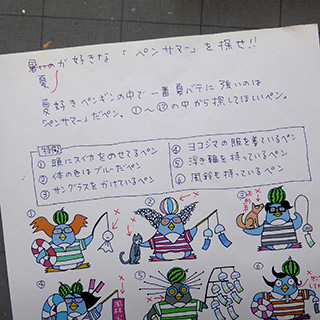 暑いのが好きな「ペンサマー」を探せ!!
夏
夏好きペンギンの中で一番夏バテに強いのは
「ペンサマー」だペン。①〜⑫の中から探してほしいペン。
特徴
① 頭にスイカをのせてるペン
② 体の色はブルーだペン
③ サングラスをかけているペン
④ ヨコジマの服を着ているペン
⑤ 浮き輪を持っているペン
⑥ 風鈴も持っているペン
① ② ③
④ ⑤ ⑥